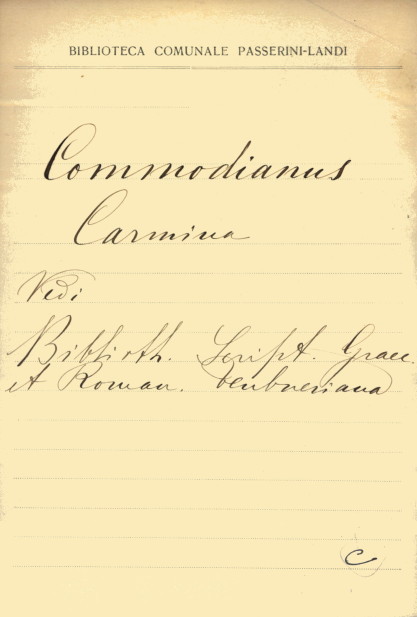 BIBLIOTECA COMUNALE PASSERINI-LANDI
Commodianus
Carmina
Vedi
Biblioth. Script. Graec.
et Roman. Teubneriana
C